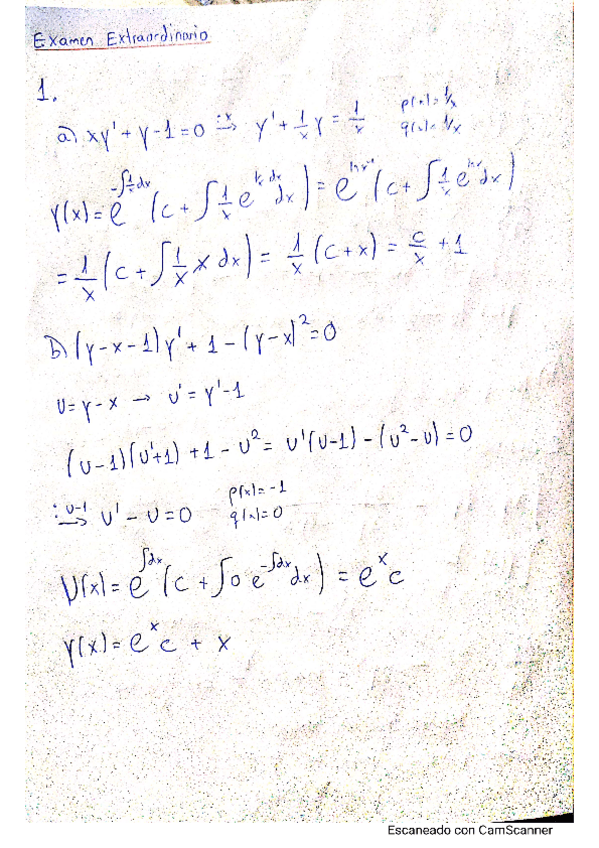 Examen Extraordinario
1.
a) xy' + y - 1 = 0 :x→ y' + 1/x y = 1/x p(x) = 1/x q(x) = 1/x
y(x) = e^(-∫1/x dx) (c + ∫ 1/x e^(∫1/x dx) dx) = e^(ln x⁻¹) (c + ∫ 1/x e^(ln x) dx)
= 1/x (c + ∫ 1/x x dx) = 1/x (c + x) = c/x + 1
b) (y - x - 1) y' + 1 - (y - x)² = 0
u = y - x → u' = y' - 1
(u - 1)(u' + 1) + 1 - u² = u'(u - 1) - (u² - u) = 0
:u-1→ u' - u = 0 p(x) = -1 q(x) = 0
u(x) = e^(∫dx) (c + ∫ 0 e^(-∫dx) dx) = e^x c
y(x) = e^x c + x
Escaneado con CamScanner